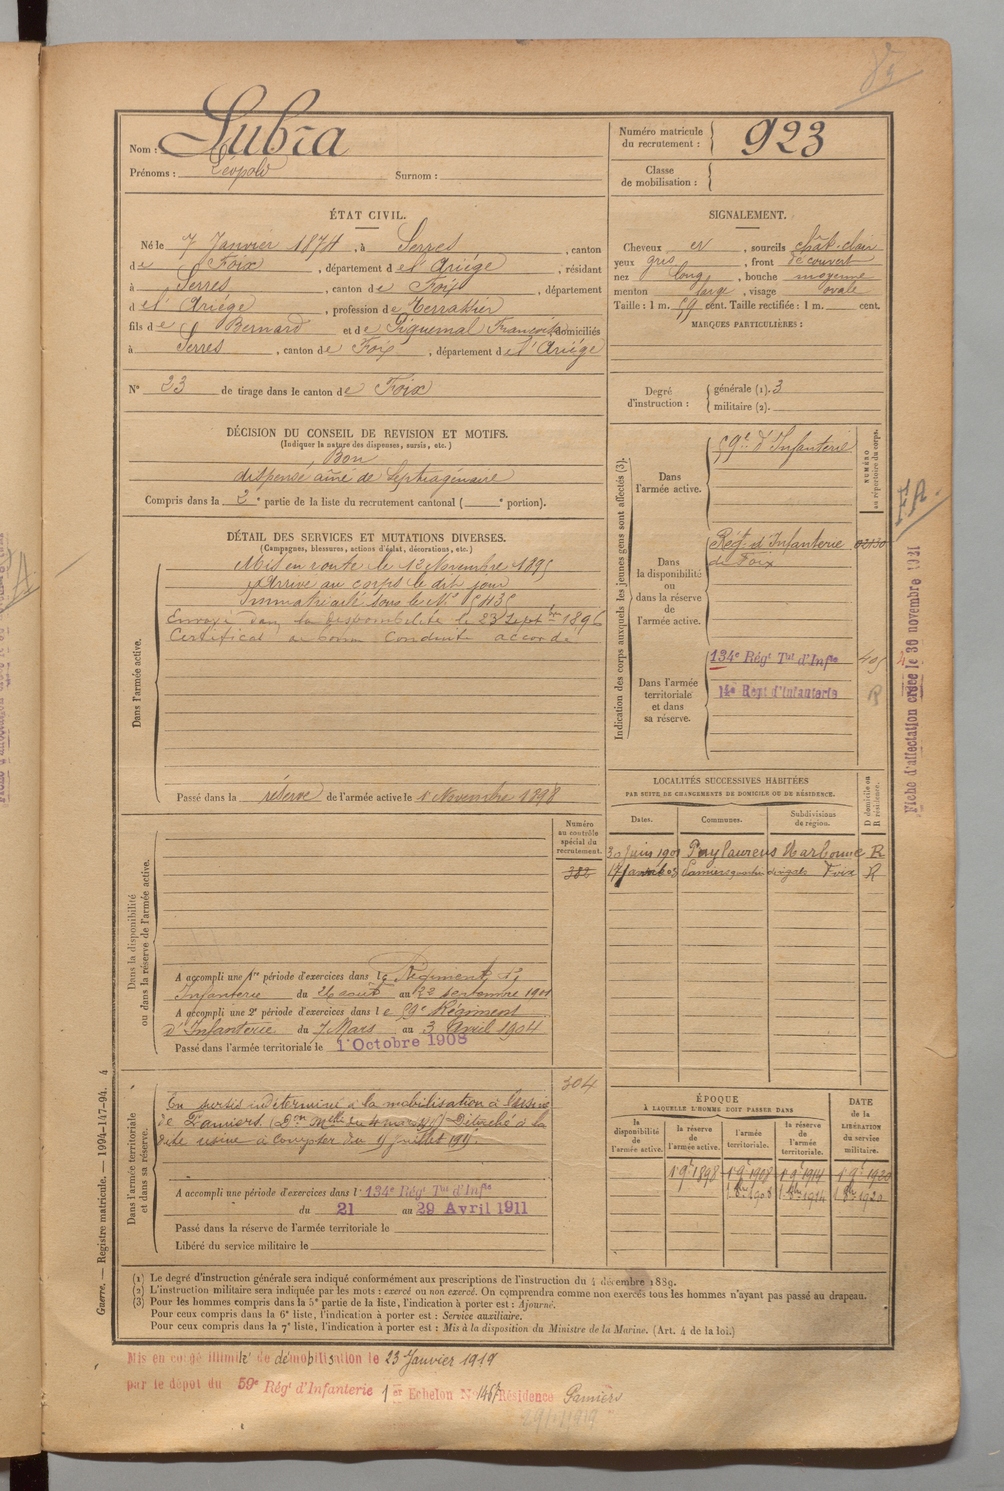 Nom : Lubra
Prénoms : Léopold Surnom :
Numéro matricule du recrutement : 923
Classe de mobilisation :
ÉTAT CIVIL.
Né le 7 Janvier 1874, à Serres, canton
de Foix, département de l'Ariége, résidant
à Serres, canton de Foix, département
de l'Ariége, profession de Terrassier
fils de Bernard et de Piquemal Françoise, domiciliés
à Serres, canton de Foix, département de l'Ariége
N° 23 de tirage dans le canton de Foix
SIGNALEMENT.
Cheveux et, sourcils chât. clair
yeux gris, front découvert
nez long, bouche moyenne
menton large, visage ovale
Taille : 1 m. 59 cent. Taille rectifiée : 1 m. cent.
MARQUES PARTICULIÈRES :
Degré d'instruction : générale (1). 3
militaire (2).
DÉCISION DU CONSEIL DE REVISION ET MOTIFS.
(Indiquer la nature des dispenses, sursis, etc.)
Bon
dispensé aîné de Septuagénaire
Compris dans la 2e partie de la liste du recrutement cantonal ( e portion).
DÉTAIL DES SERVICES ET MUTATIONS DIVERSES.
(Campagnes, blessures, actions d'éclat, décorations, etc.)
Dans l'armée active.
Mis en route le 12 Novembre 1895
Arrivé au corps le dit jour
Immatriculé sous le N° 5435
Envoyé dans la disponibilité le 23 Septbre 1896
Certificat de bonne conduite accordé
Passé dans la réserve de l'armée active le 1r Novembre 1898
Indication des corps auxquels les jeunes gens sont affectés (3).
NUMÉRO au répertoire du corps.
Dans l'armée active.
59e d'Infanterie
Dans la disponibilité ou dans la réserve de l'armée active.
Régt d'Infanterie
de Foix
Dans l'armée territoriale et dans sa réserve.
134e Régt Tal d'Infie 405
14e Regt d'Infanterie R
FA.
Fiche d'affectation créée le 30 novembre 1921
LOCALITÉS SUCCESSIVES HABITÉES
PAR SUITE DE CHANGEMENTS DE DOMICILE OU DE RÉSIDENCE.
D domicile ou R résidence.
Dates. Communes. Subdivisions de région.
30 Juin 1901 Puylaurens Narbonne R
Foix R
Numéro au contrôle spécial du recrutement.
382
Dans la disponibilité ou dans la réserve de l'armée active.
A accompli une 1re période d'exercices dans le Régiment d'
Infanterie du 26 août au 22 septembre 1901
A accompli une 2e période d'exercices dans le 59e Régiment
d'Infanterie du 7 Mars au 3 Avril 1904
Passé dans l'armée territoriale le 1 Octobre 1908
304
Dans l'armée territoriale et dans sa réserve.
En sursis indéterminé à la mobilisation à l'usine
de Pamiers. Détaché à la
dite usine à compter du 9 Juillet
A accompli une période d'exercices dans l 134e Régt Tal d'Infie
du 21 au 29 Avril 1911
Passé dans la réserve de l'armée territoriale le
Libéré du service militaire le
ÉPOQUE
À LAQUELLE L'HOMME DOIT PASSER DANS
la disponibilité de l'armée active. la réserve de l'armée active. l'armée territoriale. la réserve de l'armée territoriale.
DATE de la LIBÉRATION du service militaire.
1898 1908 1914 1920
1908 1914 1920
(1) Le degré d'instruction générale sera indiqué conformément aux prescriptions de l'instruction du 4 décembre 1889.
(2) L'instruction militaire sera indiquée par les mots : exercé ou non exercé. On comprendra comme non exercés tous les hommes n'ayant pas passé au drapeau.
(3) Pour les hommes compris dans la 5e partie de la liste, l'indication à porter est : Ajourné.
Pour ceux compris dans la 6e liste, l'indication à porter est : Service auxiliaire.
Pour ceux compris dans la 7e liste, l'indication à porter est : Mis à la disposition du Ministre de la Marine. (Art. 4 de la loi.)
Guerre. — Registre matricule. — 1994-147-94. 4
Mis en congé illimité de démobilisation le 23 Janvier 1919
par le dépôt du 59e Régt d'Infanterie 1er Echelon N° 1457 Résidence Pamiers